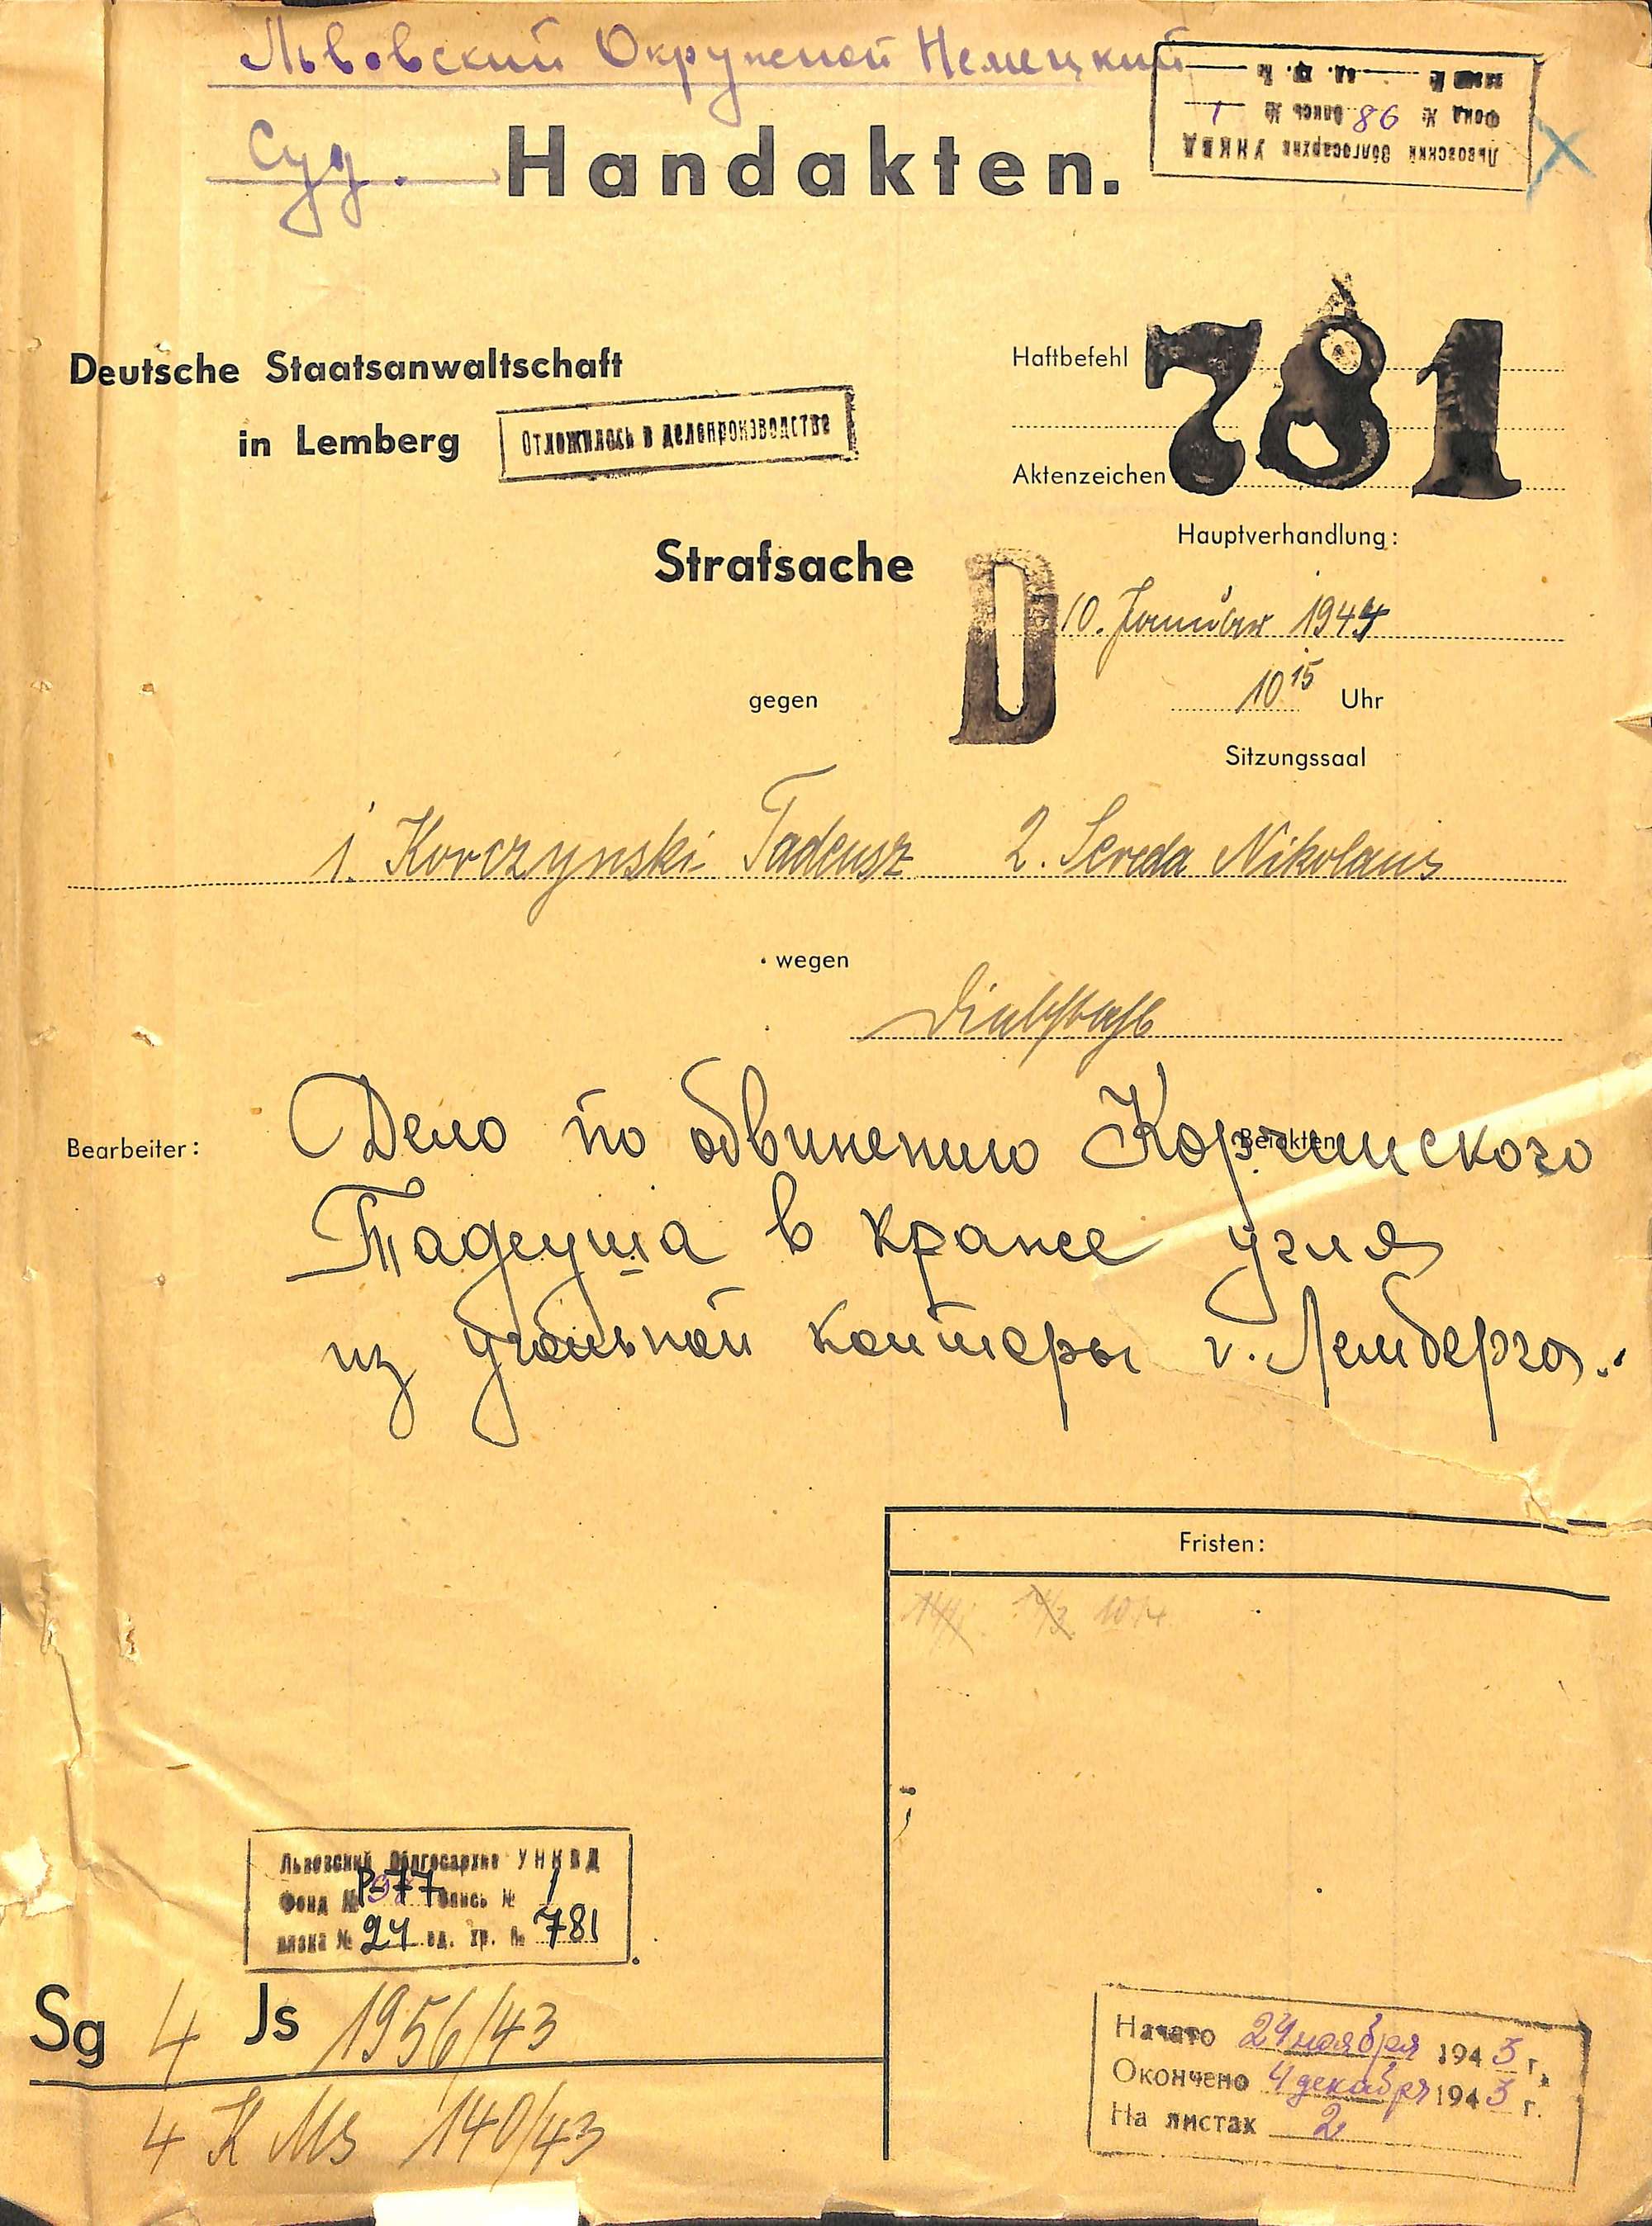 Львовский Окружной Немецкий
Суд.
Handakten.
Львовский Облгосархив УНКВД
Фонд № 86 опись № 1
ед. хр. №
Deutsche Staatsanwaltschaft
in Lemberg
Отложилось в делопроизводстве
Haftbefehl
781
Aktenzeichen
Strafsache
D
Hauptverhandlung:
10. Januar 1944
gegen
10 15 Uhr
Sitzungssaal
1. Korczynski Tadeusz 2. Sereda Nikolaus
wegen
Diebstahls
Bearbeiter:
Beiakten
Дело по обвинению Корчинского
Тадеуша в краже угля
из угольной конторы г. Лемберга.
Fristen:
10/4
Львовский Облгосархив УНКВД
Фонд № Р-77 опись № 1
вязка № 24 ед. хр. № 781
Sg 4 Js 1956/43
4 K Ms 140/43
Начато 24 ноября 1943 г.
Окончено 4 декабря 1943 г.
На листах 2